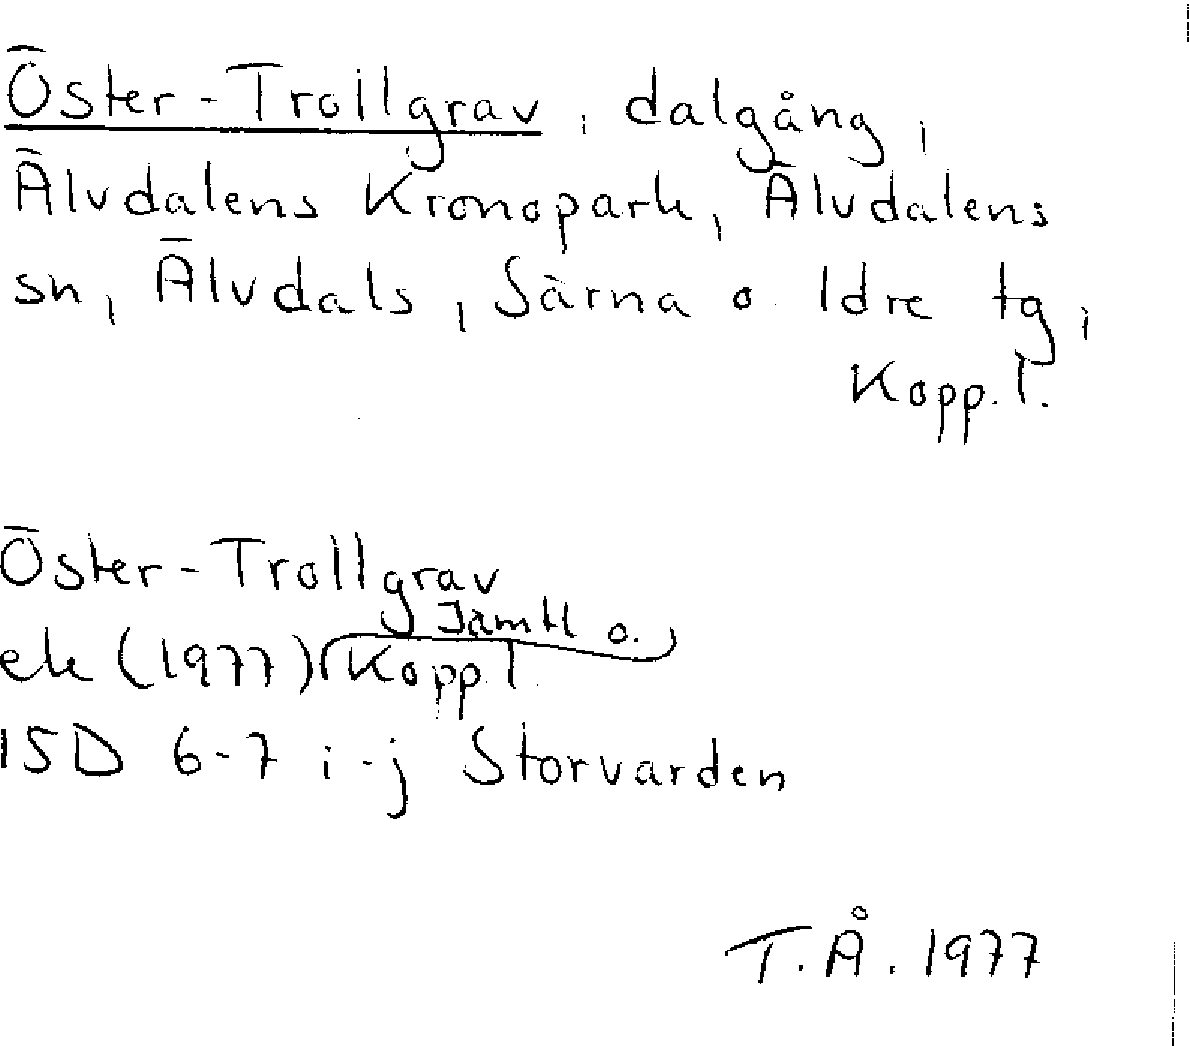 Öster-Trollgrav, dalgång i
Älvdalens Kronopark, Älvdalens
sn, Älvdals, Särna o. Idre tg,
Kopp. l.
Öster-Trollgrav
Jämtl o.
ek (1977) Kopp l.
15D 6-7 i-j Storvarden
T.Å. 1977